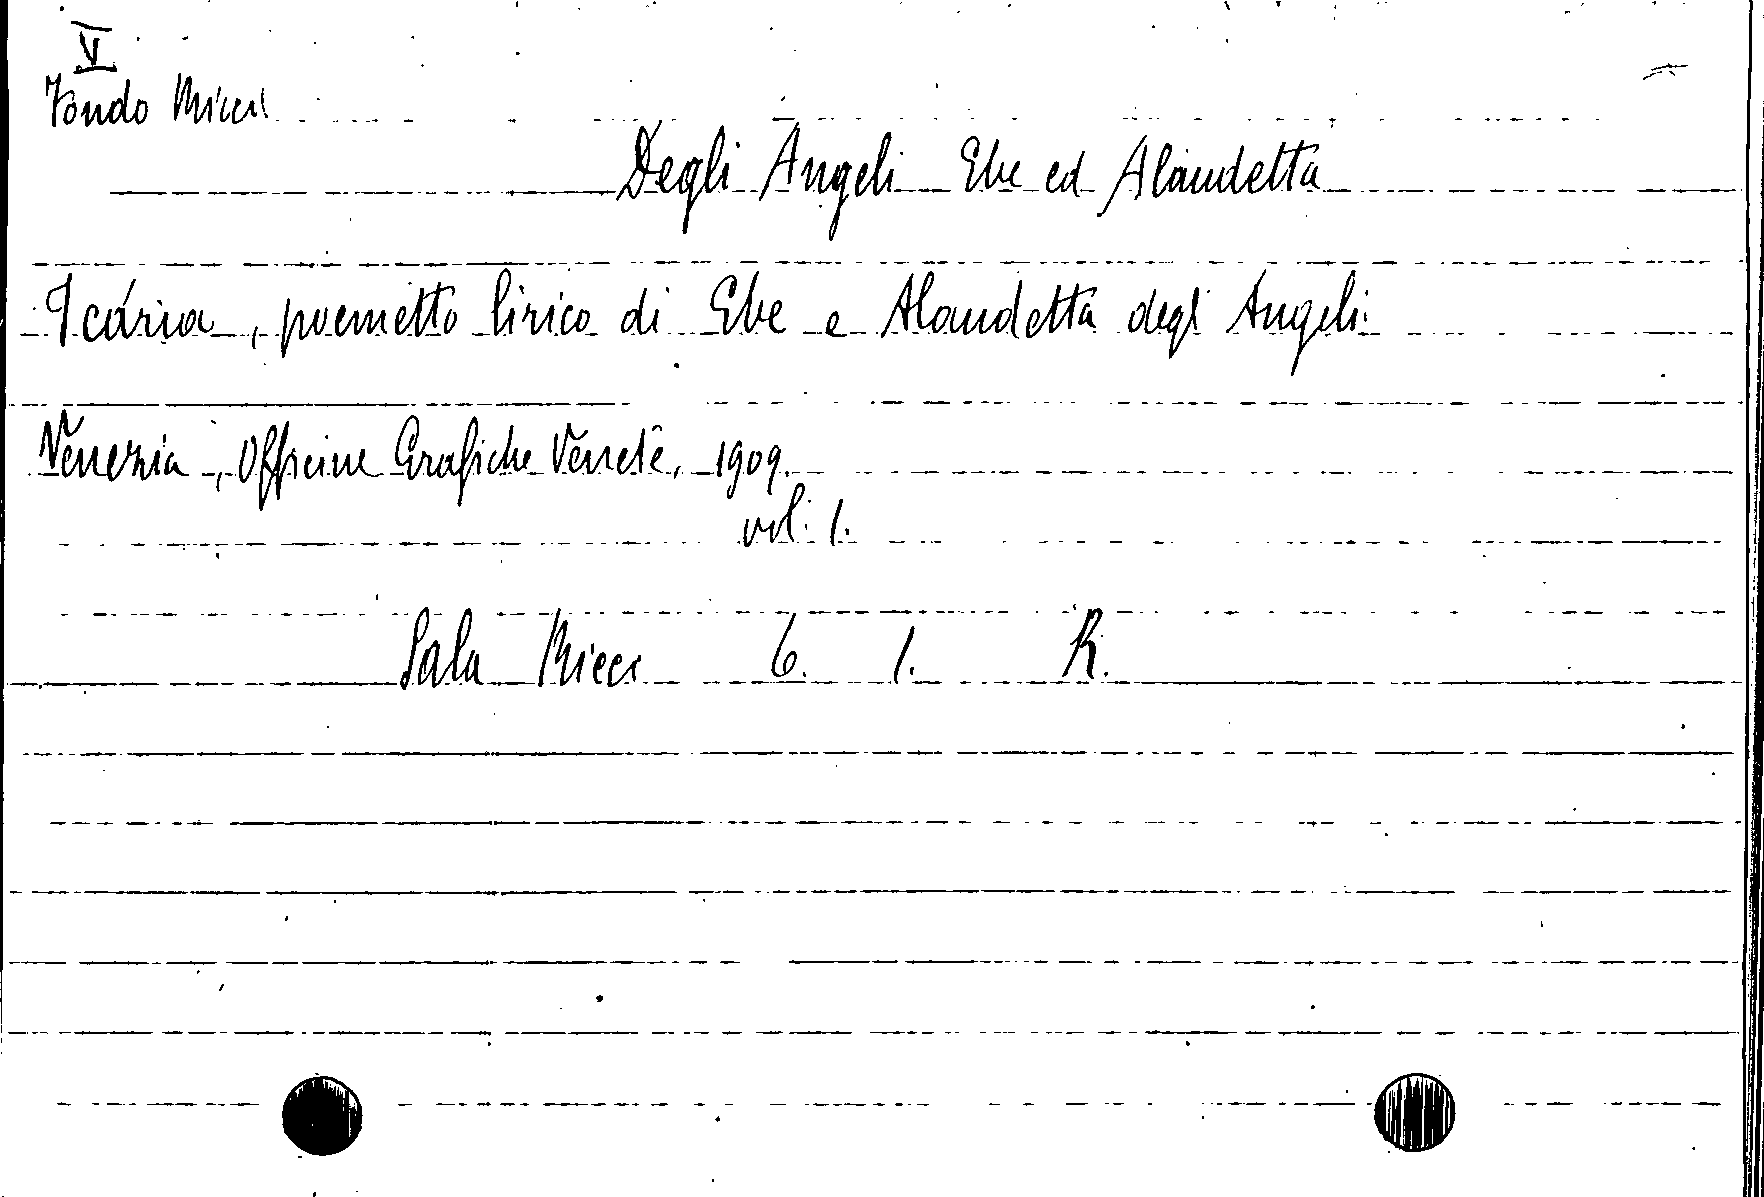 V
Fondo Ricci
Degli Angeli Ebe ed Alaudetta
Icària, poemetto lirico di Ebe e Alaudetta degl' Angeli
Venezia, Officine Grafiche Venete, 1909.
vol. 1.
Sala Ricci 6. 1. R.